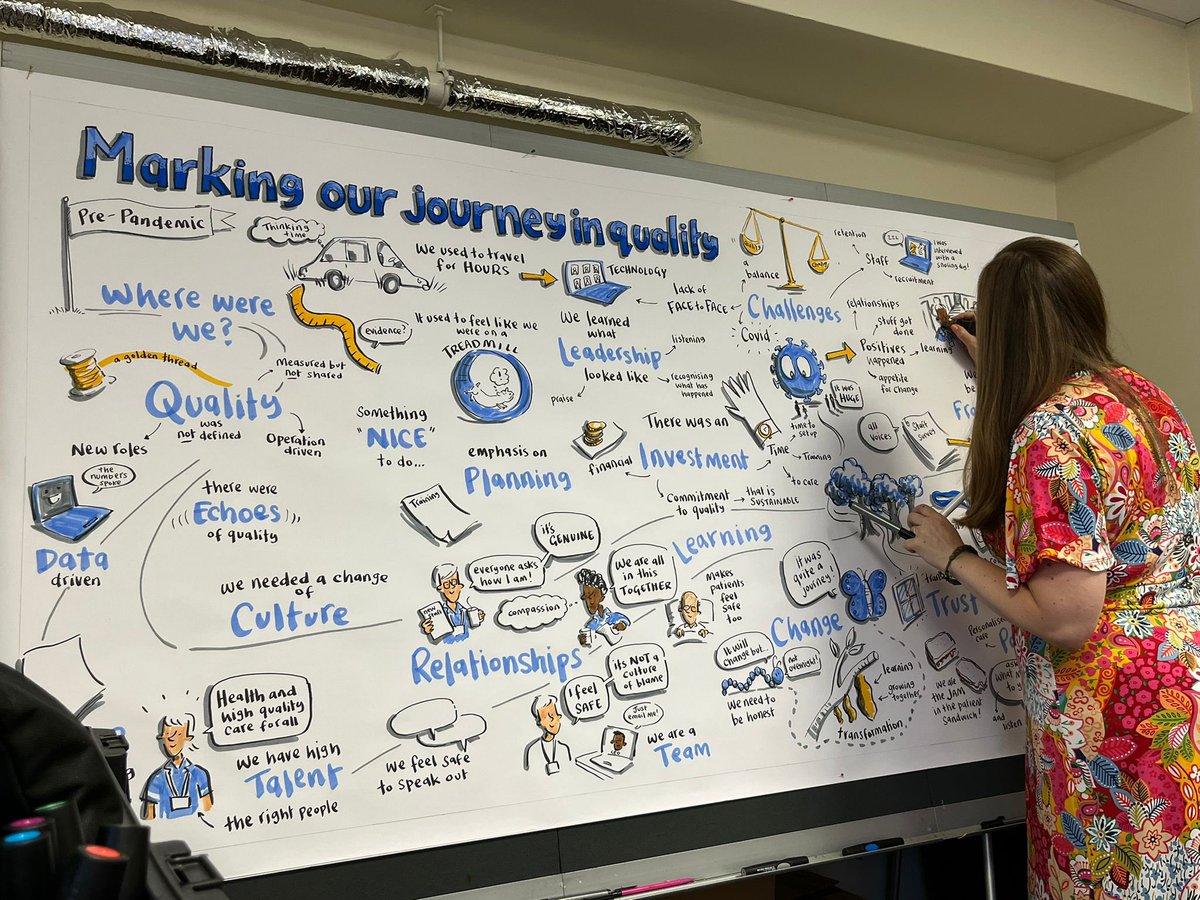 Marking our journey in quality
Pre-Pandemic
Thinking
time
We used to travel
for HOURS
TECHNOLOGY
lack of
FACE to FACE
a
balance
Challenges
retention
Staff
recruitment
I was
interviewed
with a
snoring dog!
Where were
we?
evidence?
It used to feel like we
were on a
TREADMILL
We learned
what
Leadership
looked like
listening
recognising
what has
happened
praise
Covid
It was
HUGE
relationships
stuff got
done
Positives
happened
learning
appetite
for change
a golden thread
Measured but
not shared
Quality
was
not defined
New roles
Operation
driven
Something
"NICE"
to do...
emphasis on
Planning
There was an
Investment
financial
Time
time to
set up
Training
to care
Commitment
to quality
that is
SUSTAINABLE
all
voices
Staff
survey
the
numbers
spoke
Data
driven
there were
Echoes
of quality
Training
Learning
we needed a change
of
Culture
it's
GENUINE
everyone asks
how I am!
compassion
We are all
in this
TOGETHER
makes
patients
feel
safe
too
Relationships
It was
quite a
journey.
Change
It will
change but...
not
overnight!
We need to
be honest
learning
growing
together
transformation
Trust
Personalised
care
we are
the JAM
in the patient
sandwich!
and
listen
Health and
high quality
care for all
we have high
Talent
the right people
we feel safe
to speak out
I feel
SAFE
its NOT a
culture
of blame
Just
email me!
we are a
Team